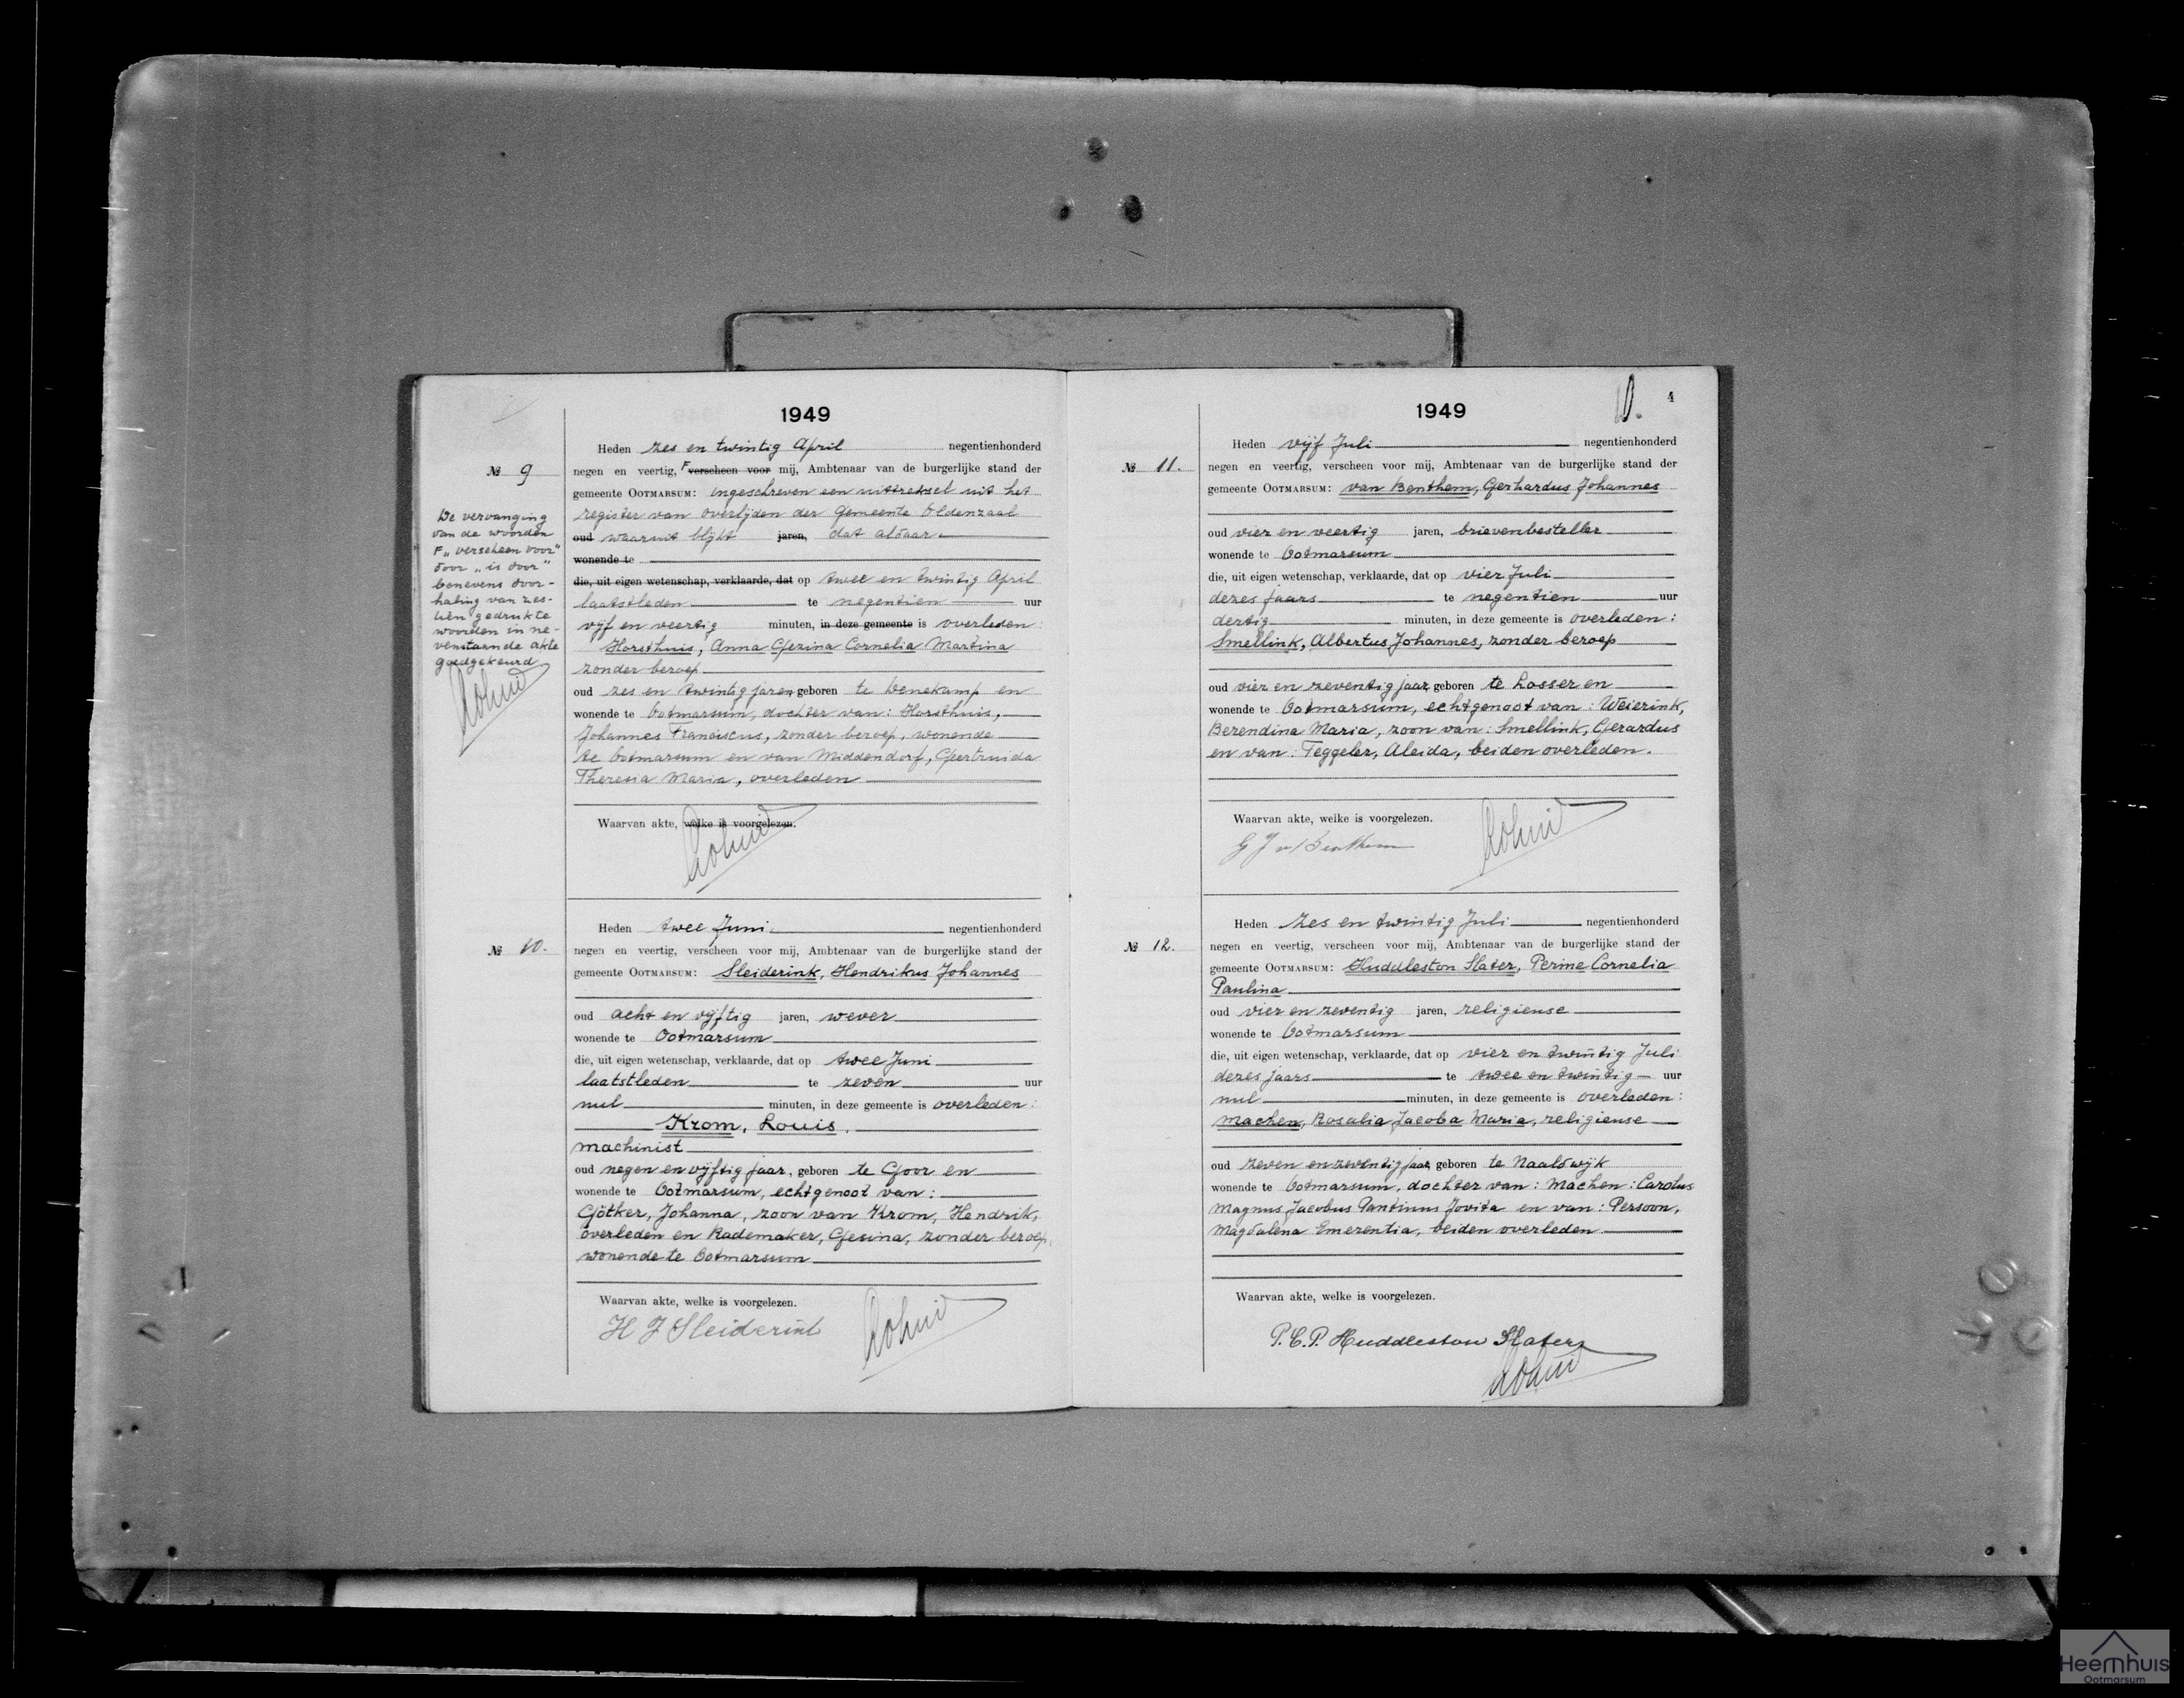 1949
Heden zes en twintig April negentienhonderd
№ 9
negen en veertig, F verscheen voor mij, Ambtenaar van de burgerlijke stand der
gemeente OOTMARSUM: ingeschreven een uittreksel uit het
register van overlijden der gemeente Oldenzaal
oud waaruit blijkt jaren, dat aldaar
wonende te
die, uit eigen wetenschap, verklaarde, dat op twee en twintig April
laatstleden te negentien uur
vijf en veertig minuten, in deze gemeente is overleden:
Horsthuis, Anna Gezina Cornelia Martina
zonder beroep
oud zes en twintig jaren, geboren te Denekamp en
wonende te Ootmarsum, dochter van: Horsthuis,
Johannes Franciscus, zonder beroep, wonende
te Ootmarsum en van Middendorf, Geertruida
Theresia Maria, overleden
Waarvan akte, welke is voorgelezen.
De vervanging
van de woorden
F „verscheen voor"
door „is door"
benevens door-
haling van zes-
tien gedrukte
woorden in ne-
venstaande akte
goedgekeurd
Heden twee Juni negentienhonderd
№ 10.
negen en veertig, verscheen voor mij, Ambtenaar van de burgerlijke stand der
gemeente OOTMARSUM: Sleiderink, Hendrikus Johannes
oud acht en vijftig jaren, wever
wonende te Ootmarsum
die, uit eigen wetenschap, verklaarde, dat op twee Juni
laatstleden te zeven uur
nul minuten, in deze gemeente is overleden:
Krom, Louis,
machinist
oud negen en vijftig jaar, geboren te Goor en
wonende te Ootmarsum, echtgenoot van:
Götker, Johanna, zoon van Krom, Hendrik,
overleden en Rademaker, Gesina, zonder beroep,
wonende te Ootmarsum
Waarvan akte, welke is voorgelezen.
H J Sleiderink
10. 4
1949
Heden vijf Juli negentienhonderd
№ 11.
negen en veertig, verscheen voor mij, Ambtenaar van de burgerlijke stand der
gemeente OOTMARSUM: van Benthem, Gerhardus Johannes
oud vier en veertig jaren, brievenbesteller
wonende te Ootmarsum
die, uit eigen wetenschap, verklaarde, dat op vier Juli
dezes jaars te negentien uur
dertig minuten, in deze gemeente is overleden:
Smellink, Albertus Johannes, zonder beroep
oud vier en zeventig jaar, geboren te Losser en
wonende te Ootmarsum, echtgenoot van: Weierink,
Berendina Maria, zoon van: Smellink, Gerardus
en van: Teggeler, Aleida, beiden overleden.
Waarvan akte, welke is voorgelezen.
G J v Benthem
Heden zes en twintig Juli negentienhonderd
№ 12.
negen en veertig, verscheen voor mij, Ambtenaar van de burgerlijke stand der
gemeente OOTMARSUM: Huddleston Slater, Perine Cornelia
Paulina
oud vier en zeventig jaren, religieuse
wonende te Ootmarsum
die, uit eigen wetenschap, verklaarde, dat op vier en twintig Juli
dezes jaars te twee en twintig uur
nul minuten, in deze gemeente is overleden:
Machen, Rosalia Jacoba Maria, religieuse
oud zeven en zeventig jaar, geboren te Naaldwijk
wonende te Ootmarsum, dochter van: Machen: Carolus
Magnus Jacobus Pantinus Jovita en van: Persoon,
Magdalena Emerentia, beiden overleden.
Waarvan akte, welke is voorgelezen.
P.C.P. Huddleston Slater
Heemhuis
Ootmarsum